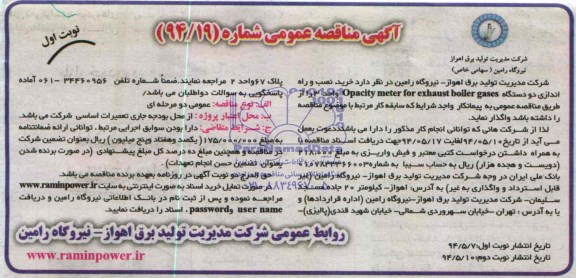 نوبت اول
آگهی مناقصه عمومی شماره (۹۴/۱۹)
شرکت مدیریت تولید برق اهواز
نیروگاه رامین (سهامی خاص)
شرکت مدیریت تولید برق اهواز- نیروگاه رامین در نظر دارد خرید، نصب و راه
اندازی دو دستگاه Opacity meter for exhaust boiler gases
طریق مناقصه عمومی به پیمانکار واجد شرایط که سابقه کار مرتبط با موضوع مناقصه
را داشته باشد واگذار نماید.
لذا از شرکت هائی که توانائی انجام کار مذکور را دارا می باشند دعوت بعمل
می آید از تاریخ ۹۴/۰۵/۱۰ لغایت ۹۴/۰۵/۱۷ جهت دریافت اسناد مناقصه با
به همراه داشتن درخواست کتبی معتبر و فیش واریزی به مبلغ
(دویست و هجده هزار) ریال به حساب سیبا به شماره
بانک ملی ایران در وجه شرکت مدیریت تولید برق اهواز- نیروگاه رامین (غیر
قابل استرداد و واگذاری به غیر) به آدرس: اهواز- کیلومتر ۲۰ جاده مسجد
سلیمان- شرکت مدیریت تولید برق اهواز- نیروگاه رامین (اداره قراردادها) و
یا به آدرس: تهران- خیابان سهروردی شمالی- خیابان شهید قندی (پالیزی)-
پلاک ۶۷ واحد ۲ مراجعه نمایند. ضمناً شماره تلفن ۳۴۴۶۰۹۵۶ -۰۶۱ آماده
پاسخگویی به سوالات دواطلبان می باشد/
الف: نوع مناقصه: عمومی دو مرحله ای
ب: محل اعتبار پروژه: از محل بودجه جاری تعمیرات اساسی شرکت می باشد.
ج: شرایط متقاضی: دارا بودن سوابق اجرایی مرتبط، توانائی ارائه ضمانتنامه
به مبلغ ۱۷۵/۰۰۰/۰۰۰ (یکصد و هفتاد و پنج میلیون) ریال بعنوان تضمین شرکت
در مناقصه و مبلغ ده درصد کل مبلغ پیشنهادی (در صورت برنده شدن
بعنوان تضمین حسن انجام تعهدات).
حق الدرج دو نوبت آگهی در روزنامه بعهده برنده مناقصه می باشد.
در صورت تمایل خرید اسناد به صورت اینترنتی به سایت www.raminpower.ir
مراجعه نموده و پس از ثبت نام در بانک اطلاعاتی نیروگاه رامین و دریافت
user name و password، اسناد را دریافت نمایید.
تاریخ انتشار نوبت اول: ۹۴/۵/۷
تاریخ انتشار نوبت دوم: ۹۴/۵/۱۰
روابط عمومی شرکت مدیریت تولید برق اهواز- نیروگاه رامین
www.raminpower.ir